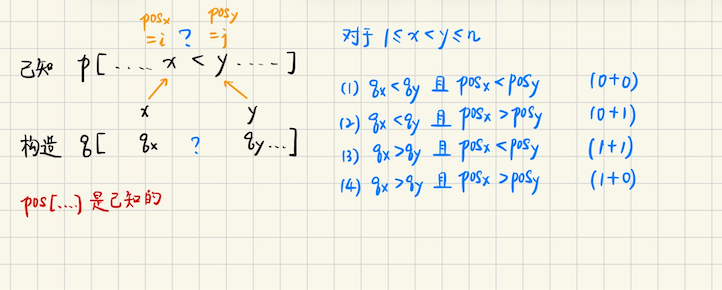 posx posy
=i ? =j
已知 p[ .... x < y .... ]
x y
构造 q[ qx ? qy... ]
pos[...] 是已知的
对于 1≤x<y≤n
(1) qx<qy 且 posx<posy (0+0)
(2) qx<qy 且 posx>posy (0+1)
(3) qx>qy 且 posx<posy (1+1)
(4) qx>qy 且 posx>posy (1+0)